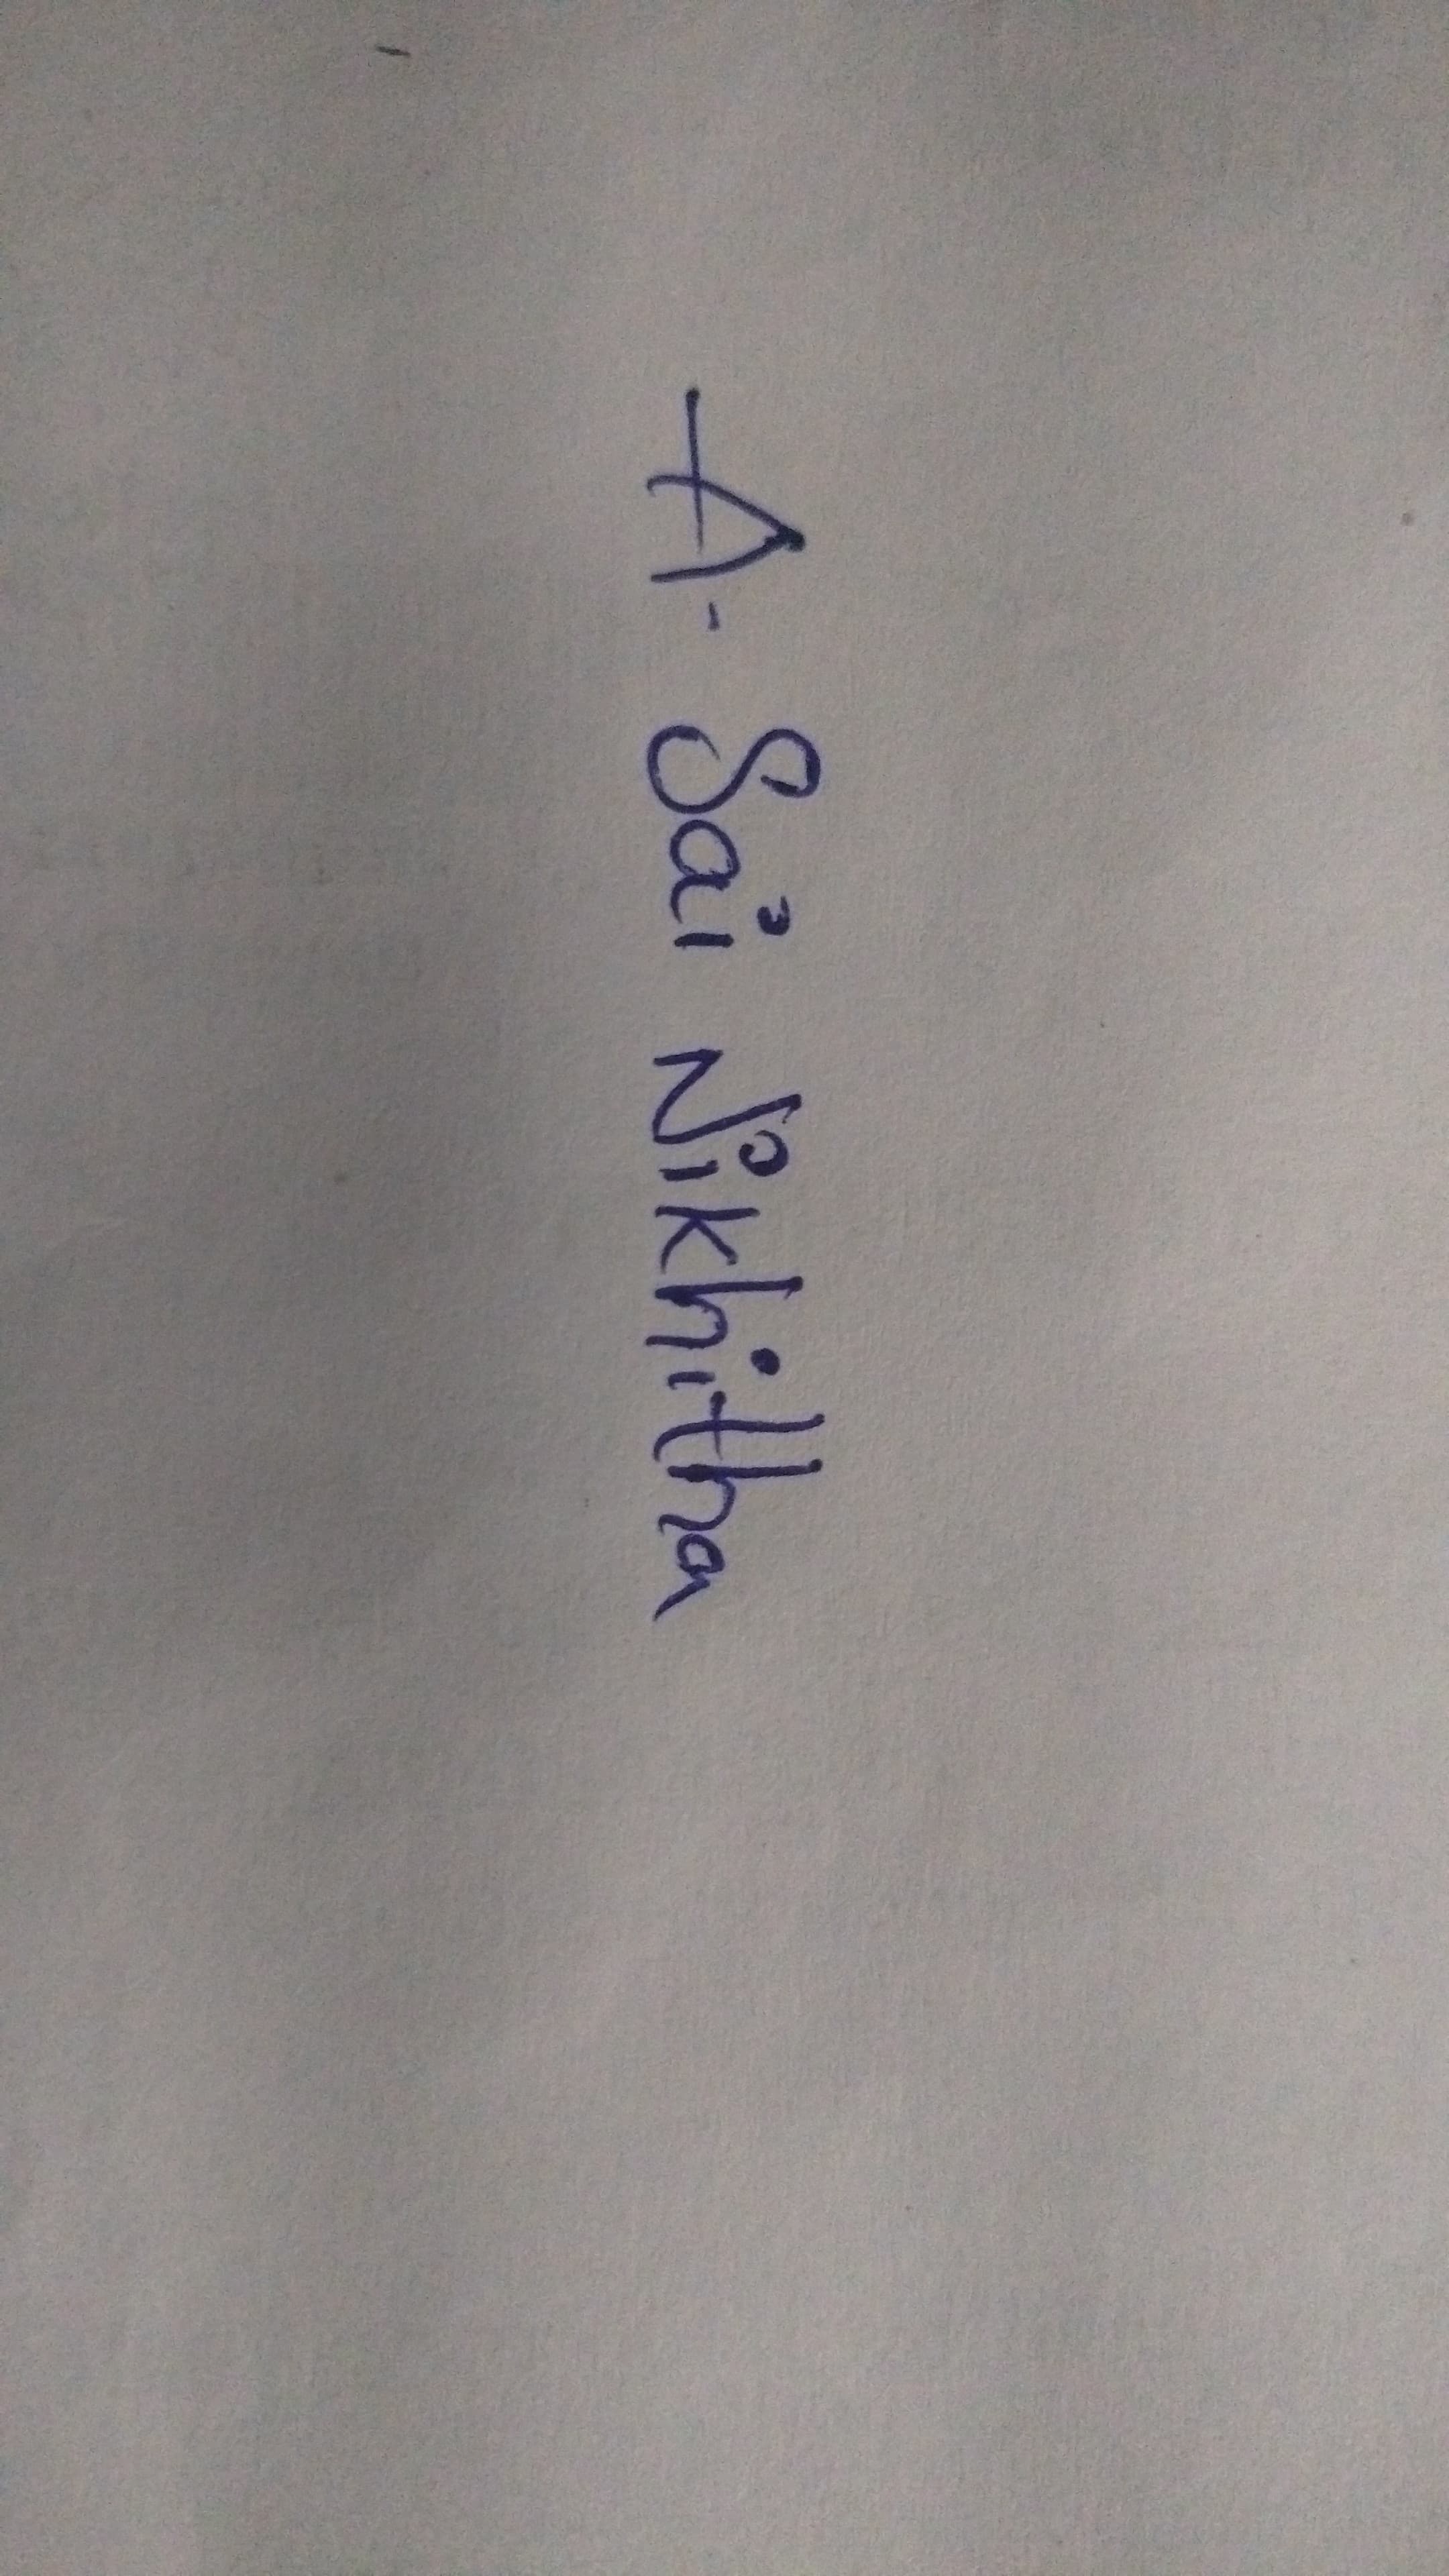 A. Sai Nikhitha